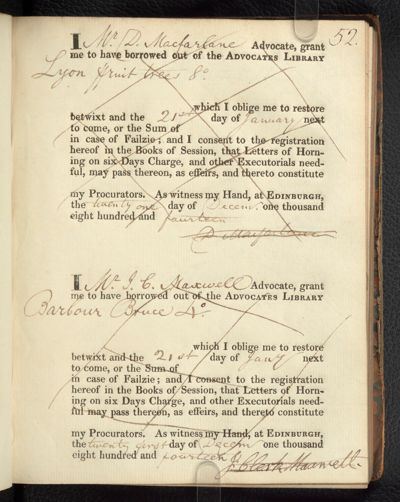 52.
I Mr D. Macfarlane Advocate, grant
me to have borrowed out of the ADVOCATES LIBRARY
Lyon fruit trees 8o
which I oblige me to restore
betwixt and the 21st day of January next
to come, or the Sum of
in case of Failzie; and I consent to the registration
hereof in the Books of Session, that Letters of Horn-
ing on six Days Charge, and other Executorials need-
ful, may pass thereon, as effeirs, and thereto constitute
my Procurators. As witness my Hand, at EDINBURGH,
the twenty one day of Decem. one thousand
eight hundred and fourteen
D Macfarlane
I Mr J. C. Maxwell Advocate, grant
me to have borrowed out of the ADVOCATES LIBRARY
Barbour Bruce 4o.
which I oblige me to restore
betwixt and the 21st day of Jany next
to come, or the Sum of
in case of Failzie; and I consent to the registration
hereof in the Books of Session, that Letters of Horn-
ing on six Days Charge, and other Executorials need-
ful may pass thereon, as effeirs, and thereto constitute
my Procurators. As witness my Hand, at EDINBURGH,
the twenty first day of Decem one thousand
eight hundred and fourteen
J Clerk Maxwell.